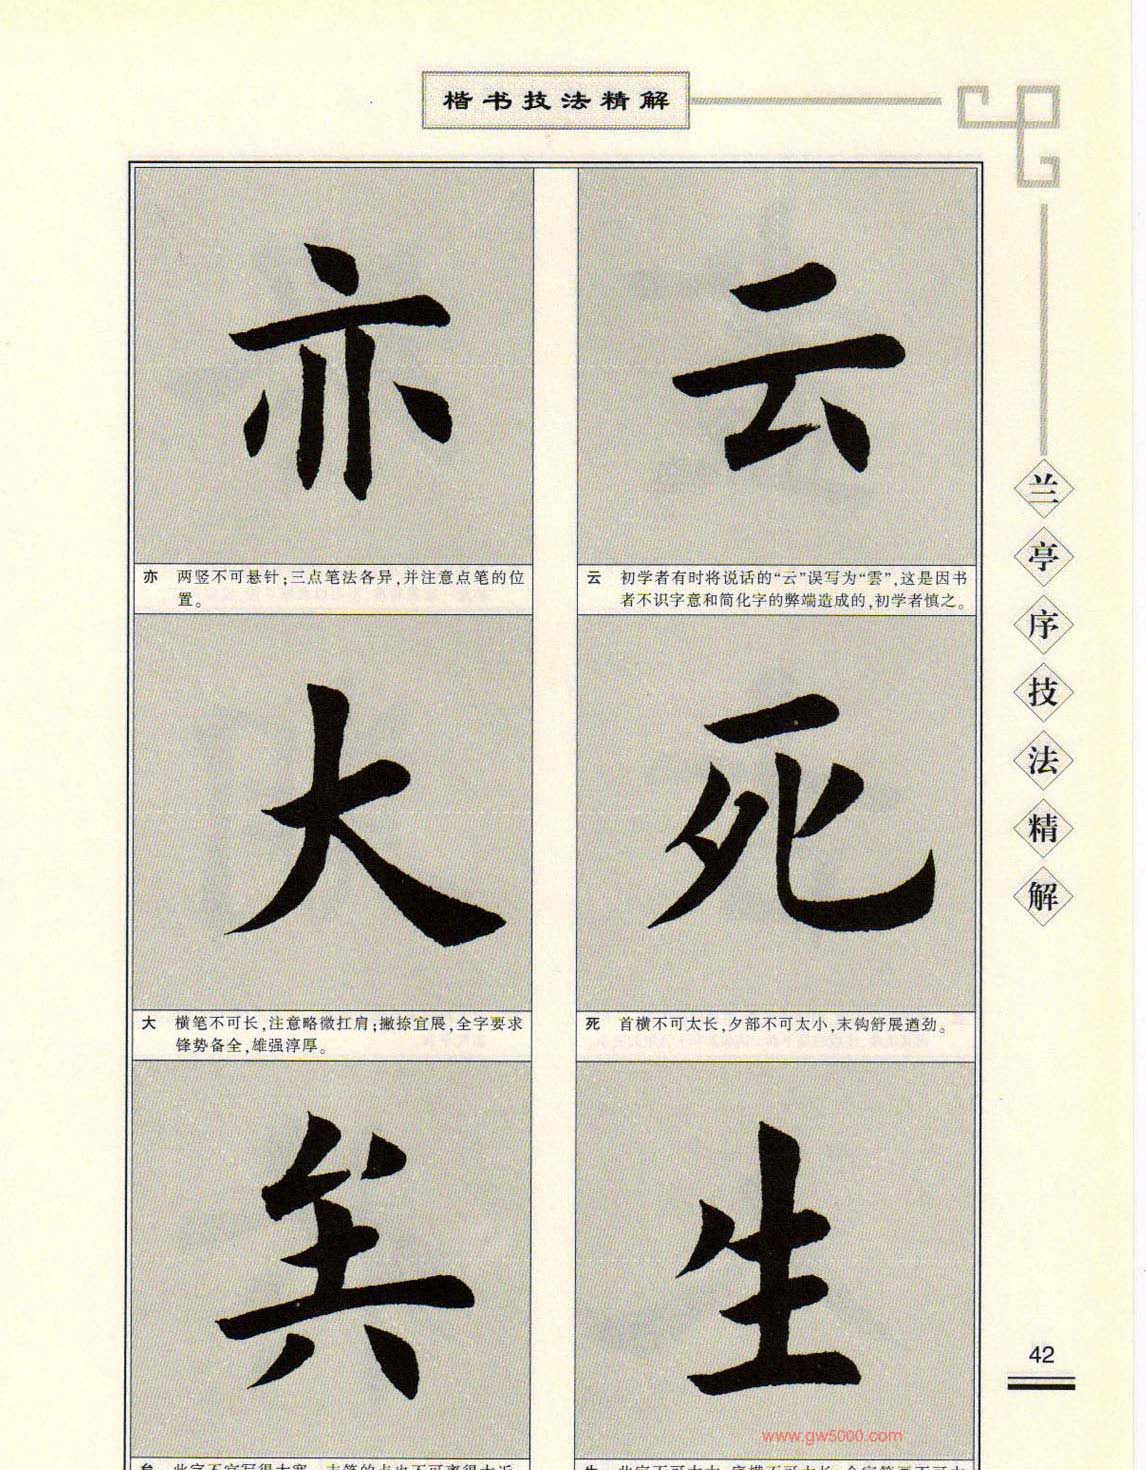 楷书技法精解
兰亭序技法精解
云
云 初学者有时将说话的“云”误写为“雲”,这是因书
者不识字意和简化字的弊端造成的,初学者慎之。
死
死 首横不可太长,夕部不可太小,末钩舒展遒劲。
生
亦
亦 两竖不可悬针;三点笔法各异,并注意点笔的位
置。
大
大 横笔不可长,注意略微扛肩;撇捺宜展,全字要求
锋势备全,雄强淳厚。
矣
42
www.gw5000.com